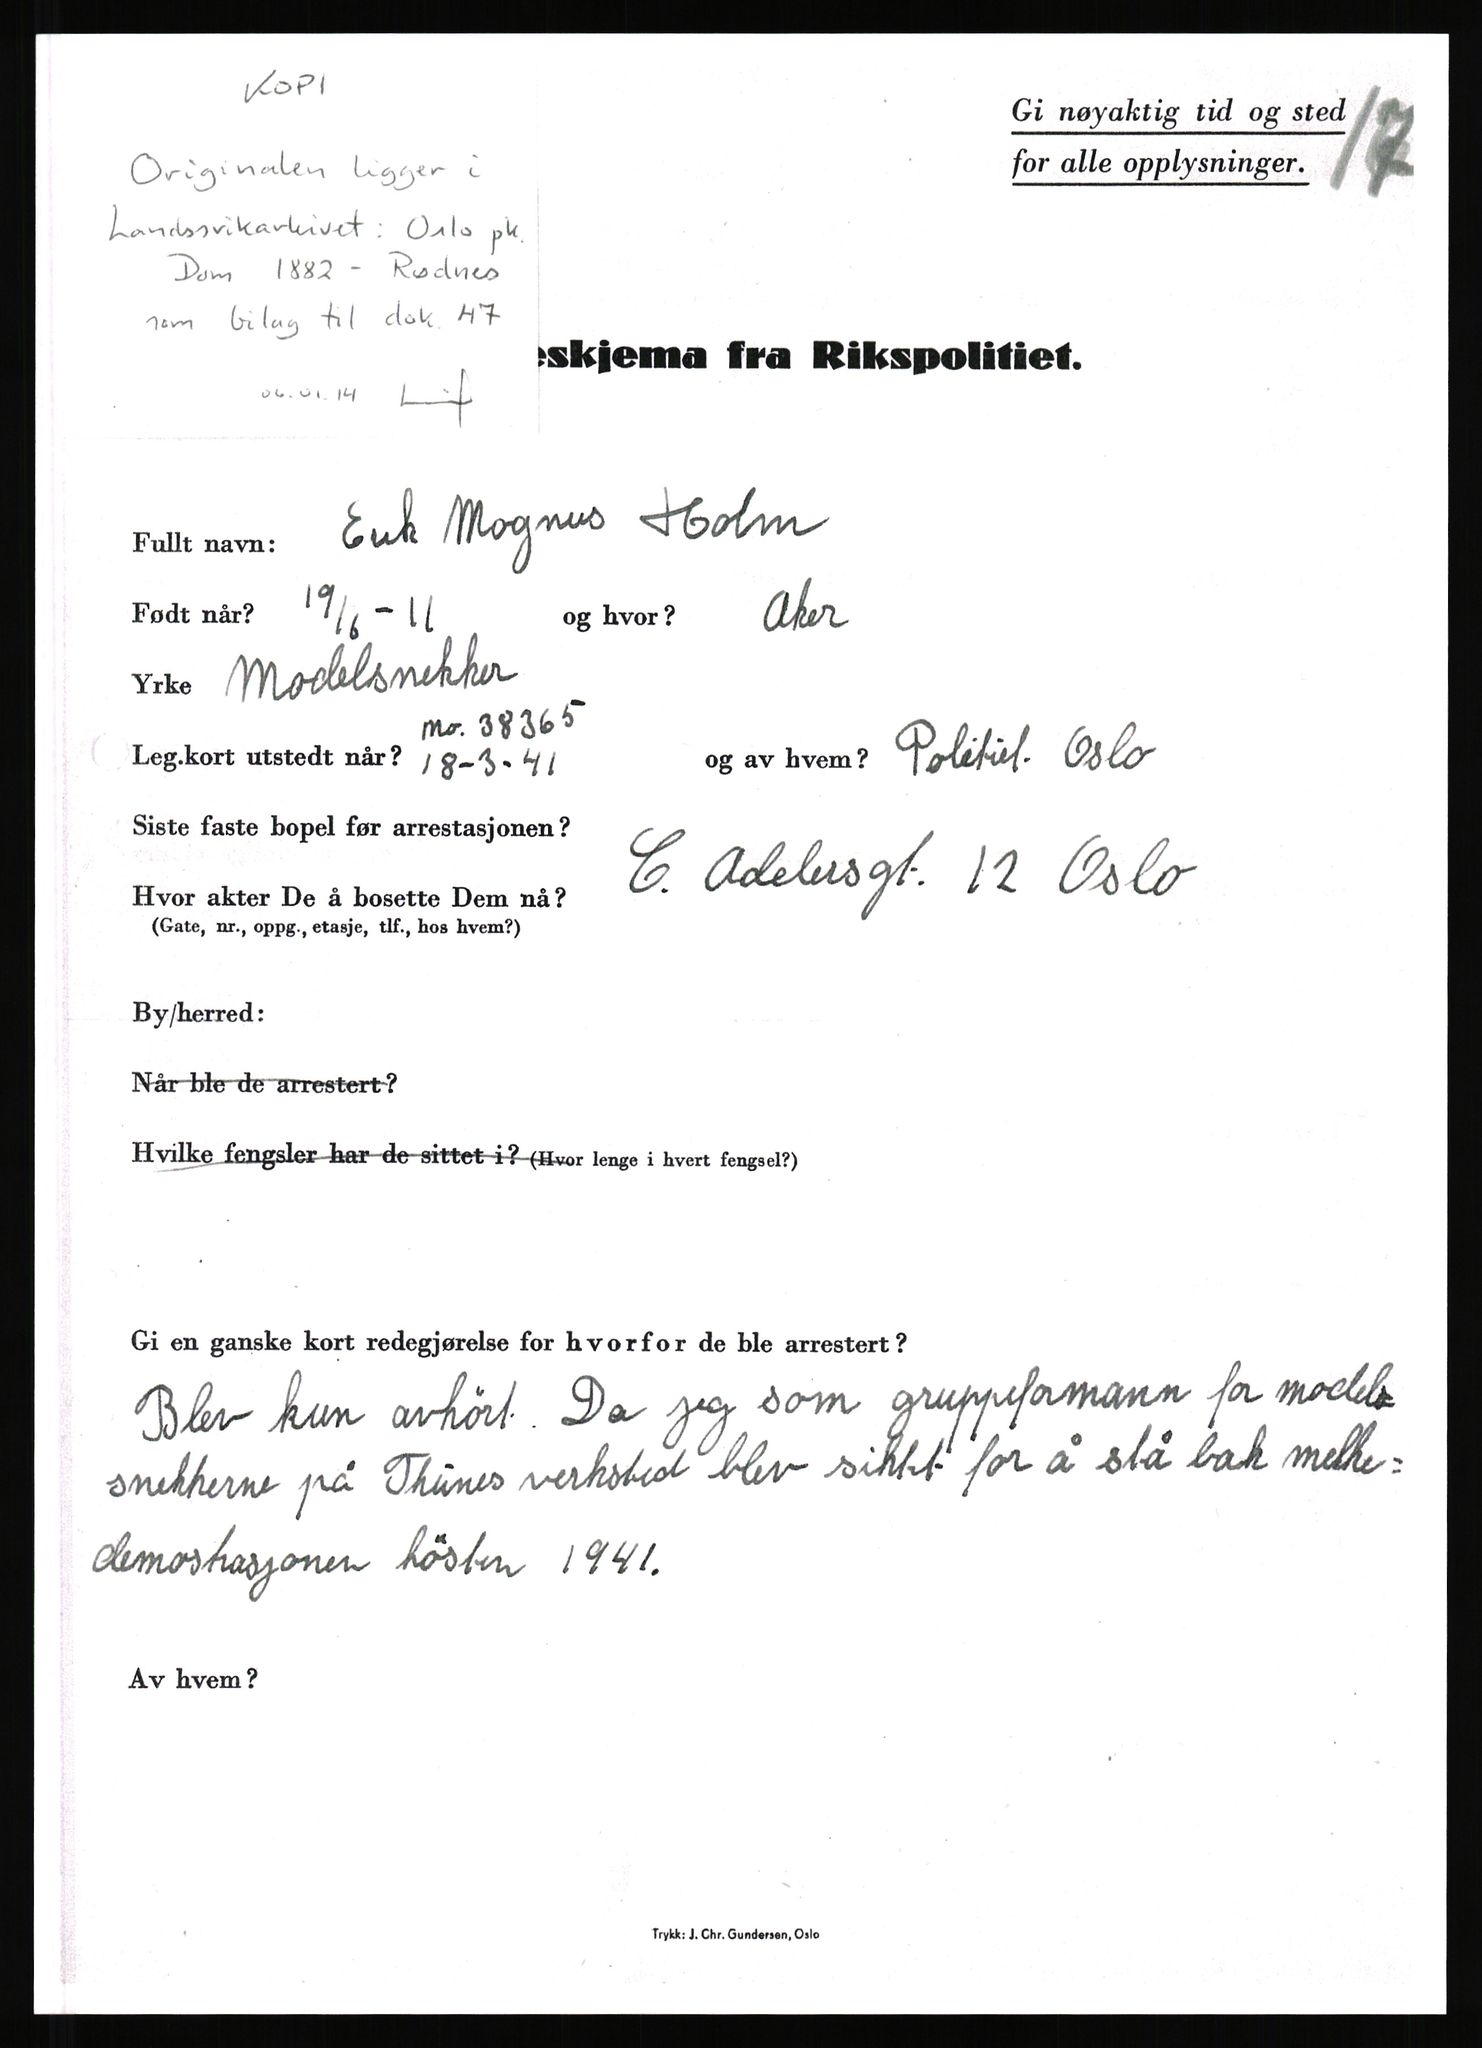 KOPI
Originalen ligger i
Landssvikarkivet: Oslo pk.
Dom 1882 - Rødnes
som bilag til dok. 47
06.01.14
Gi nøyaktig tid og sted
for alle opplysninger.
eskjema fra Rikspolitiet.
Fullt navn: Erik Magnus Holm
Født når? 19/6-11 og hvor? Aker
Yrke Modelsnekker
no. 38365
Leg.kort utstedt når? 18-3-41 og av hvem? Politiet. Oslo
Siste faste bopel før arrestasjonen?
C. Adelersgt. 12 Oslo
Hvor akter De å bosette Dem nå?
(Gate, nr., oppg., etasje, tlf., hos hvem?)
By/herred:
Når ble de arrestert?
Hvilke fengsler har de sittet i? (Hvor lenge i hvert fengsel?)
Gi en ganske kort redegjørelse for hvorfor de ble arrestert?
Blev kun avhört. Da jeg som gruppeformann for model-
snekkerne på Thünes verksted blev siktet for å stå bak melke=
demostrasjonen hösten 1941.
Av hvem?
Trykk: J. Chr. Gundersen, Oslo